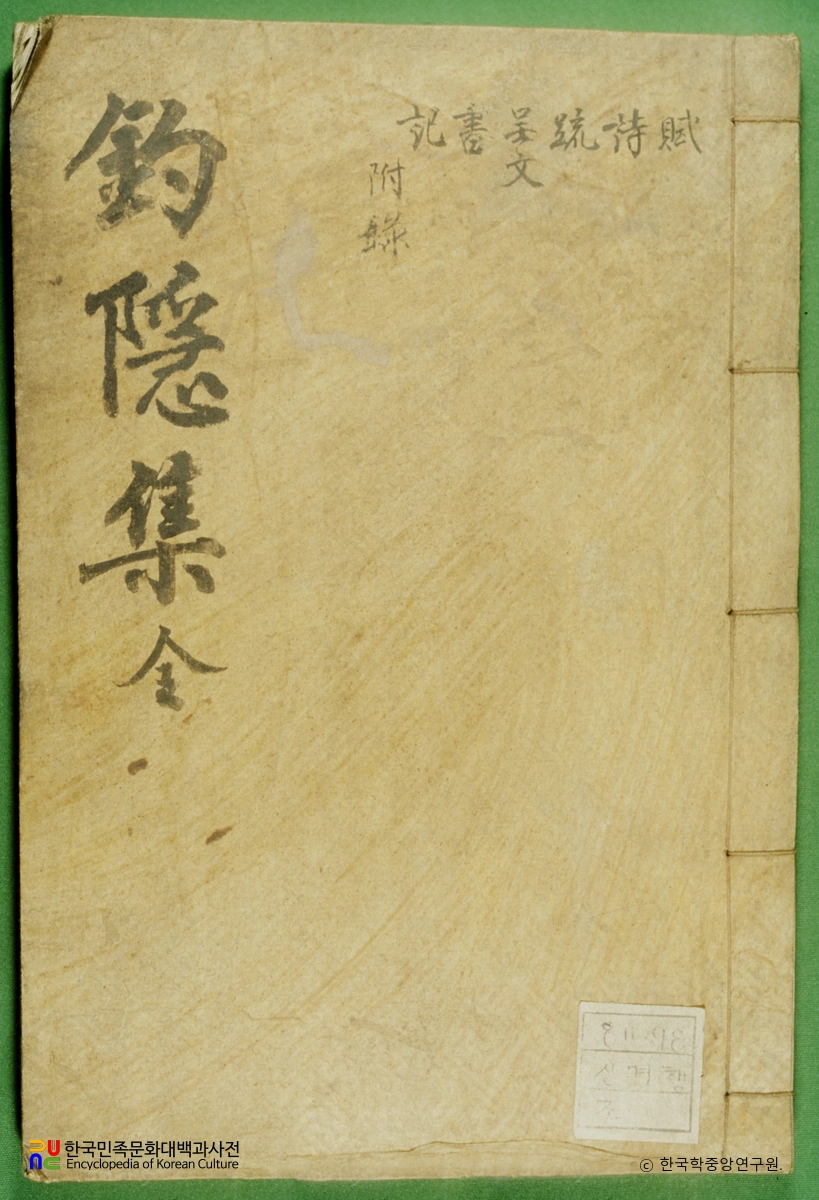 賦
詩
疏
文
書
記
附錄
釣隱集全
한국민족문화대백과사전
Encyclopedia of Korean Culture
ⓒ 한국학중앙연구원.